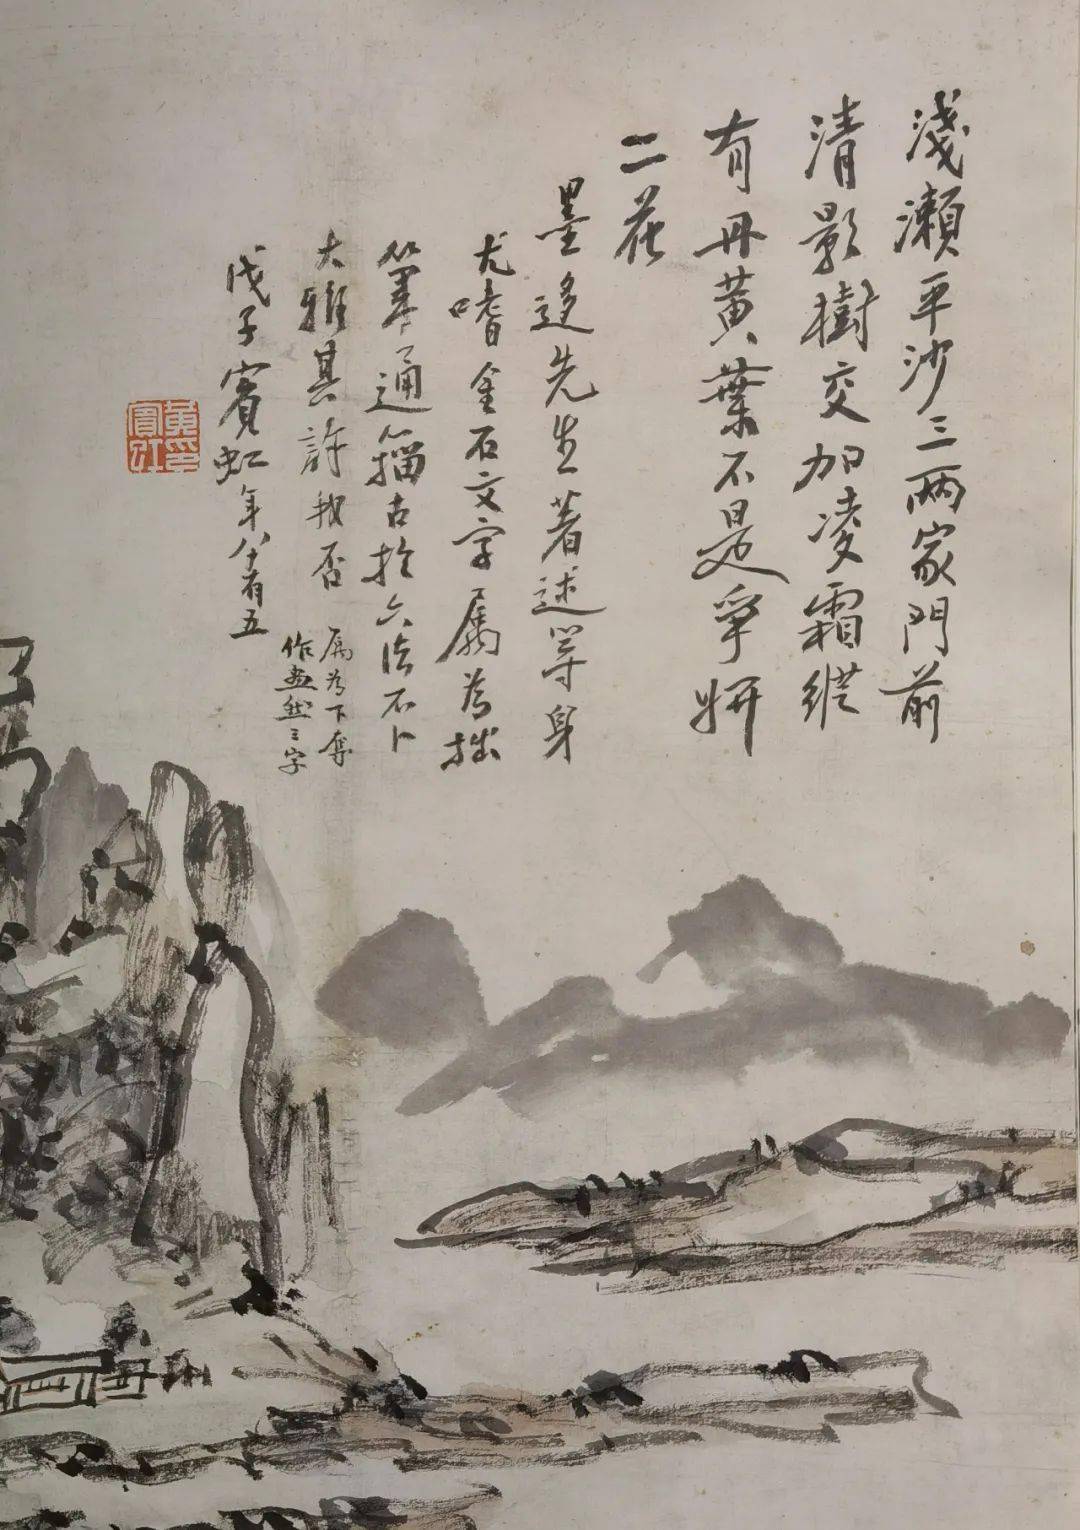 淺瀨平沙三兩家門前
清影樹交加凌霜縱
有丹黃葉不是爭妍
二花
墨迻先生著述等身
尤嗜金石文字屬為拙
筆通籀古於六法不卜
大雅其許我否
屬為下奪
作畫然三字
戊子賓虹年八十有五
黃賓虹印